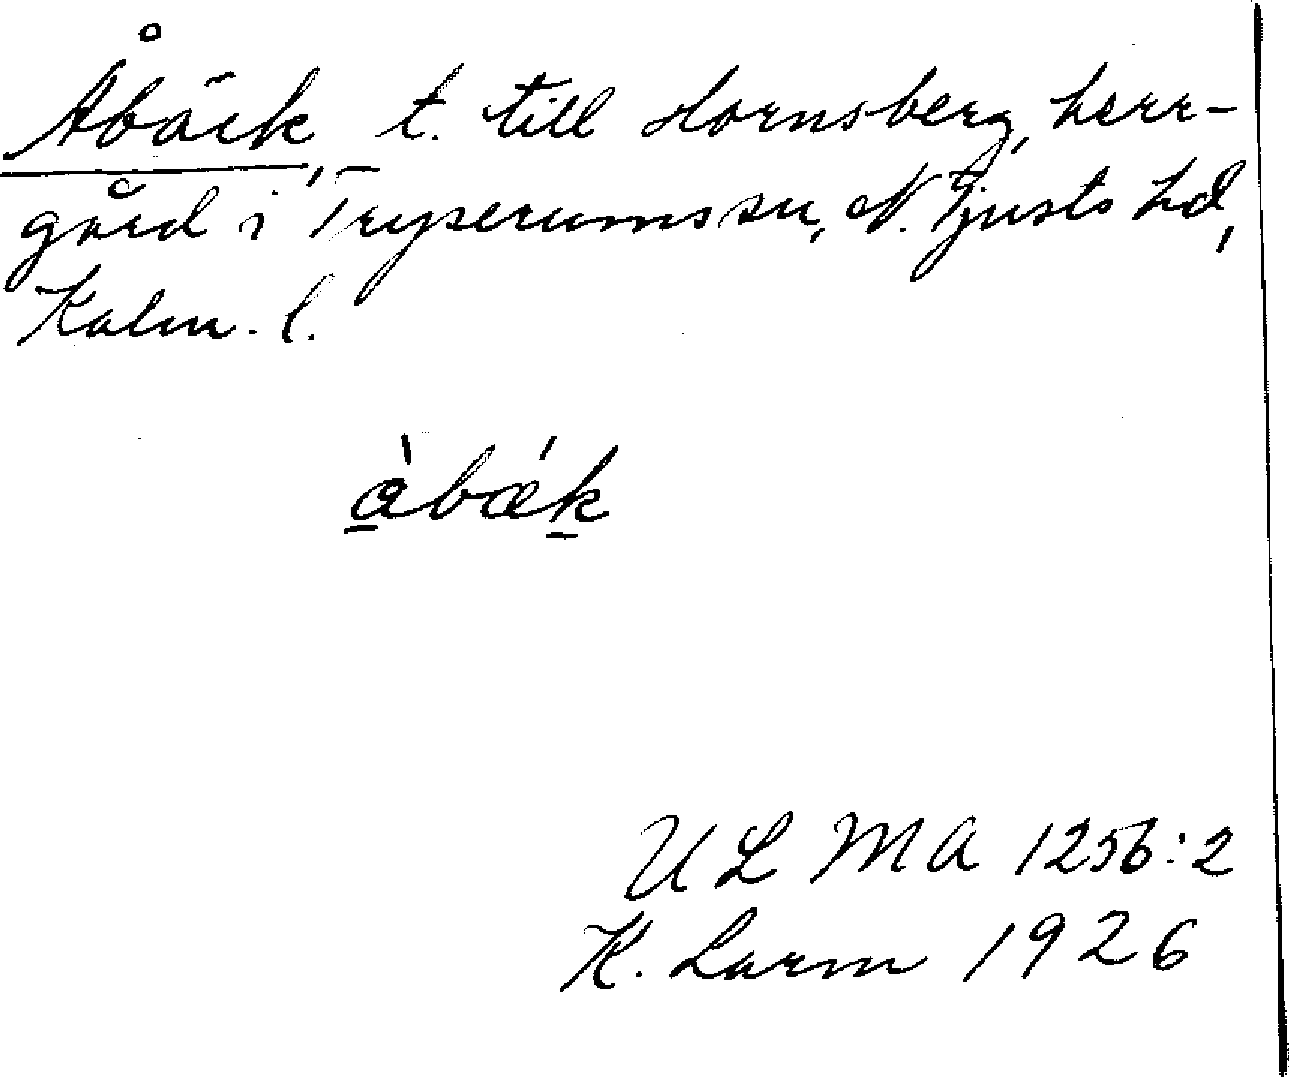 Åbäck, t. till Hornsberg, herr-
gård i Tryserums sn, N. Tjusts hd,
Kalm. l.
å̀bǽk
U L M A 1256:2
K. Larm 1926